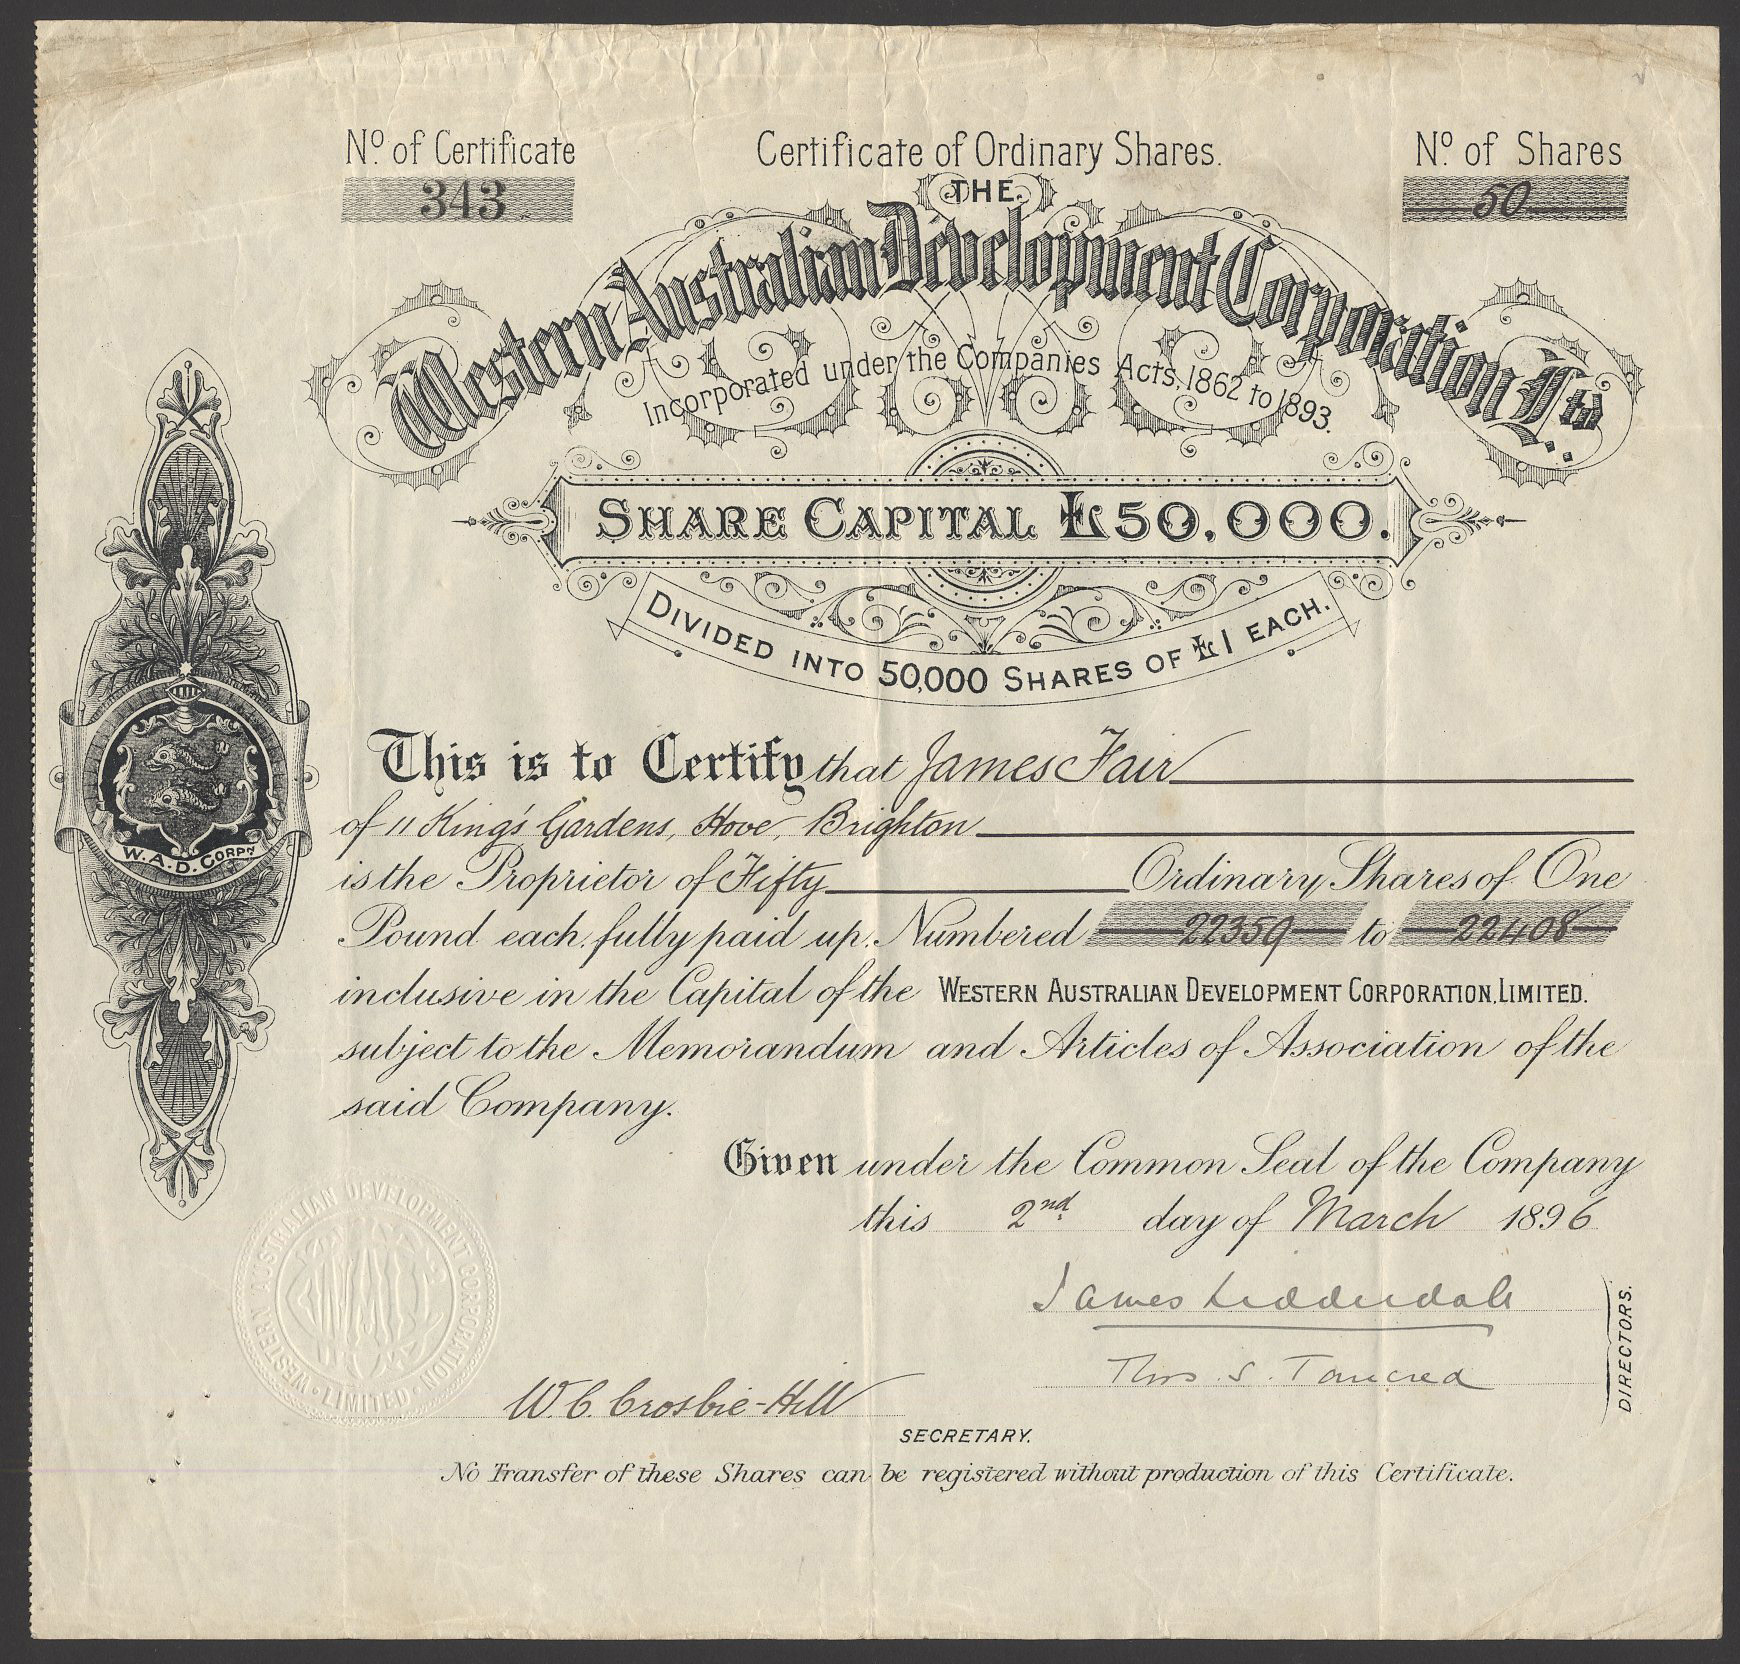 Nº of Certificate
343
Certificate of Ordinary Shares.
Nº of Shares
50
THE
Western Australian Development Corporation Ltd.
Incorporated under the Companies Acts, 1862 to 1893.
SHARE CAPITAL £50,000.
DIVIDED INTO 50,000 SHARES OF £1 EACH.
This is to Certify that James Fair
of 11 King's Gardens, Hove, Brighton
is the Proprietor of Fifty Ordinary Shares of One
Pound each, fully paid up. Numbered 22359 to 22408
inclusive in the Capital of the WESTERN AUSTRALIAN DEVELOPMENT CORPORATION, LIMITED.
subject to the Memorandum and Articles of Association of the
said Company.
W.A.D. CORPN.
Given under the Common Seal of the Company
this 2nd day of March 1896
WESTERN AUSTRALIAN DEVELOPMENT CORPORATION
• LIMITED •
James Lidderdale
Thos. S. Tancred
DIRECTORS.
W. C. Crosbie-Hill
SECRETARY.
No Transfer of these Shares can be registered without production of this Certificate.